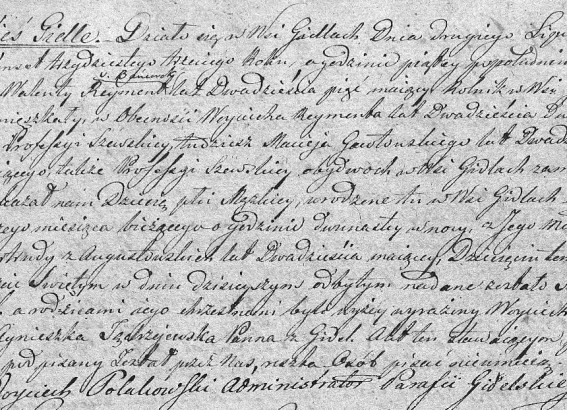 Wieś Gidle. Działo się w Wsi Gidlach Dnia drugiego Lipca
trzydziestego trzeciego Roku, o godzinie piątey popołudniu
Walenty Reyment lat Dwadzieścia pięć maiący Rolnik w Wsi
mieszkały, w Obecności Woyciecha Reymenta lat Dwadzieścia
Professyi Szewskiey, tudzież Macieja Gawłowskiego lat Dwadzieścia
tuteż Professyi Szewskiey, obydwoch w Wsi Gidlach
nam Dziecię płci Męzkiey, urodzone tu w Wsi Gidlach
miesiąca bieżącego o godzinie dwunastey w nocy, z Jego
z Augustowskich lat Dwadzieścia maiącey, Dziecięciu temu
Świętym w dniu dzisieyszym odbytym nadane zostało
a rodzicami iego chrzestnemi byli wyżey wyrażony Woyciech
Agnieszka Panna z Gidel. Akt ten stawaiącym,
podpisany został przez Nas, reszta Osób pisać nieumieią
Woyciech Polakowski Administrator Parafii Gidelskiey